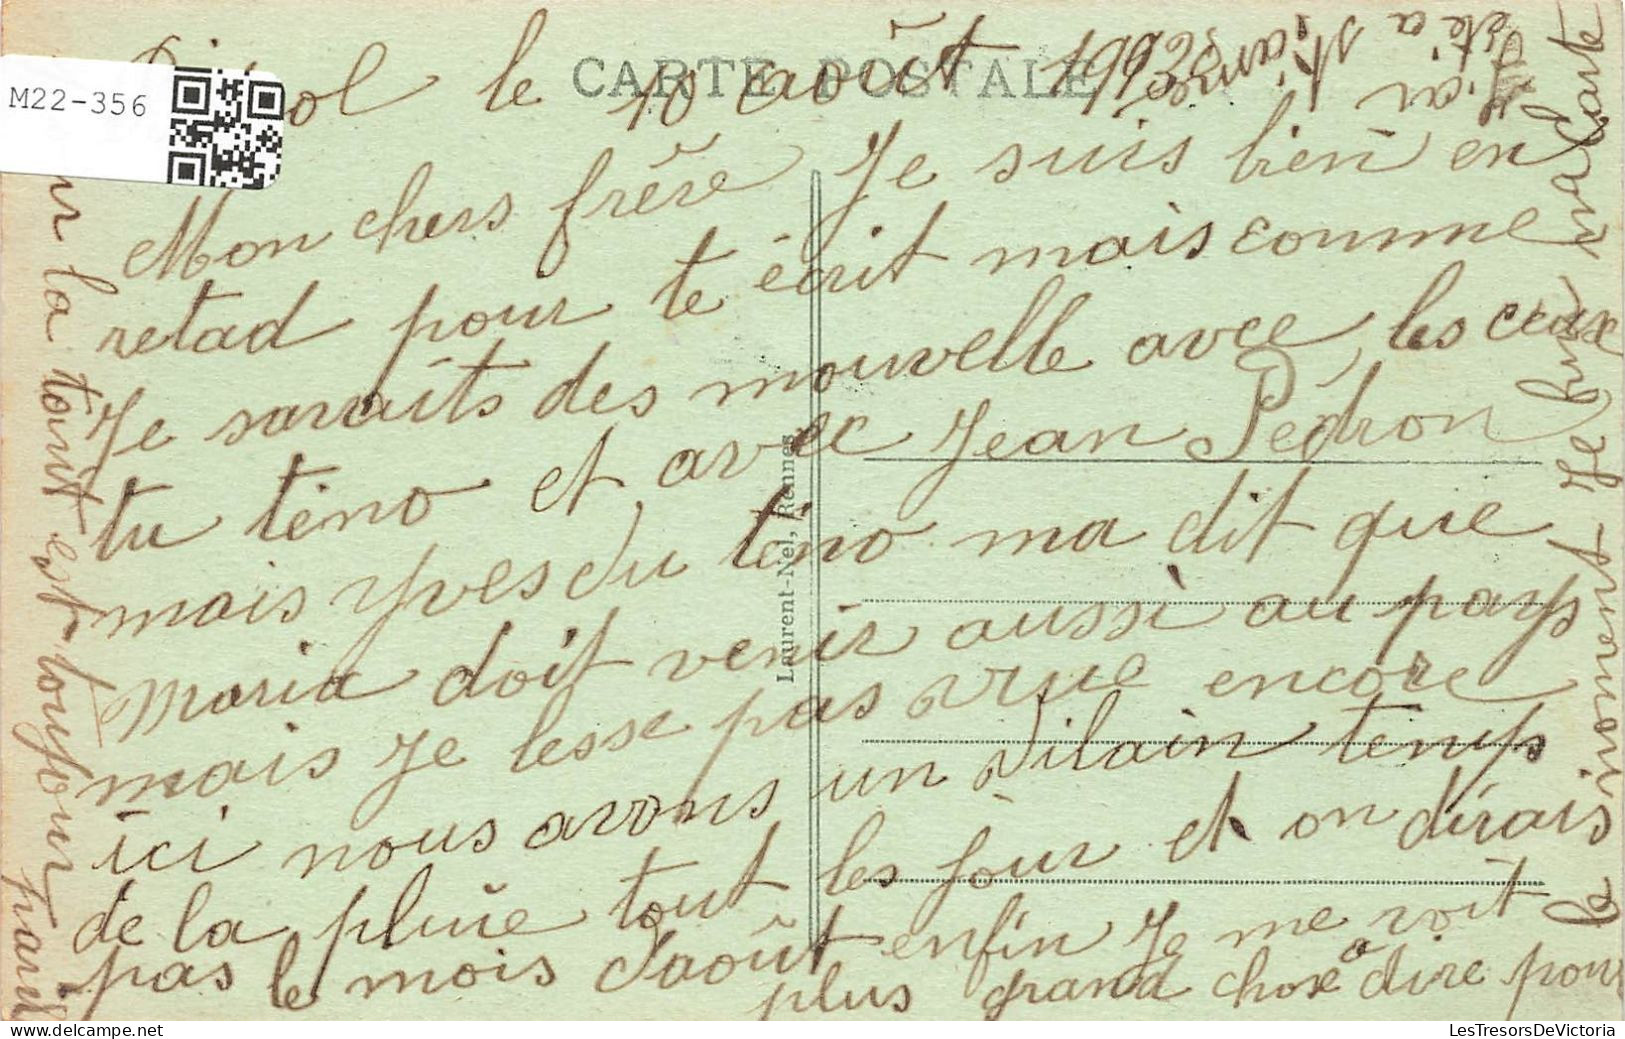 M22-356
CARTE POSTALE
le 10 août 1926
Mon chers frère Je suis bien en
retad pour te écrit mais comme
Je savaits des nouvelle avec les ceux
tu téno et avec Jean Pédron
mais Yves du téno ma dit que
Maria doit venir aussi au pays
mais Je lesse pas vrue encore
ici nous avons un vilain temps
de la pluie tout les jour et on dirais
pas le mois d'août enfin Je me voit
plus grand chose a dire pour
la tout est toujour
Laurent-Nel, Rennes
J'ai
été a
carte
Je
LesTresorsDeVictoria.com